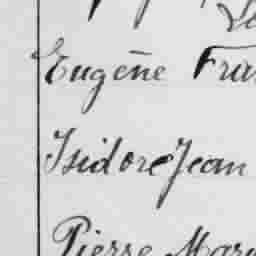 Eugène Fra
Isidore Jean
Pierre Mar